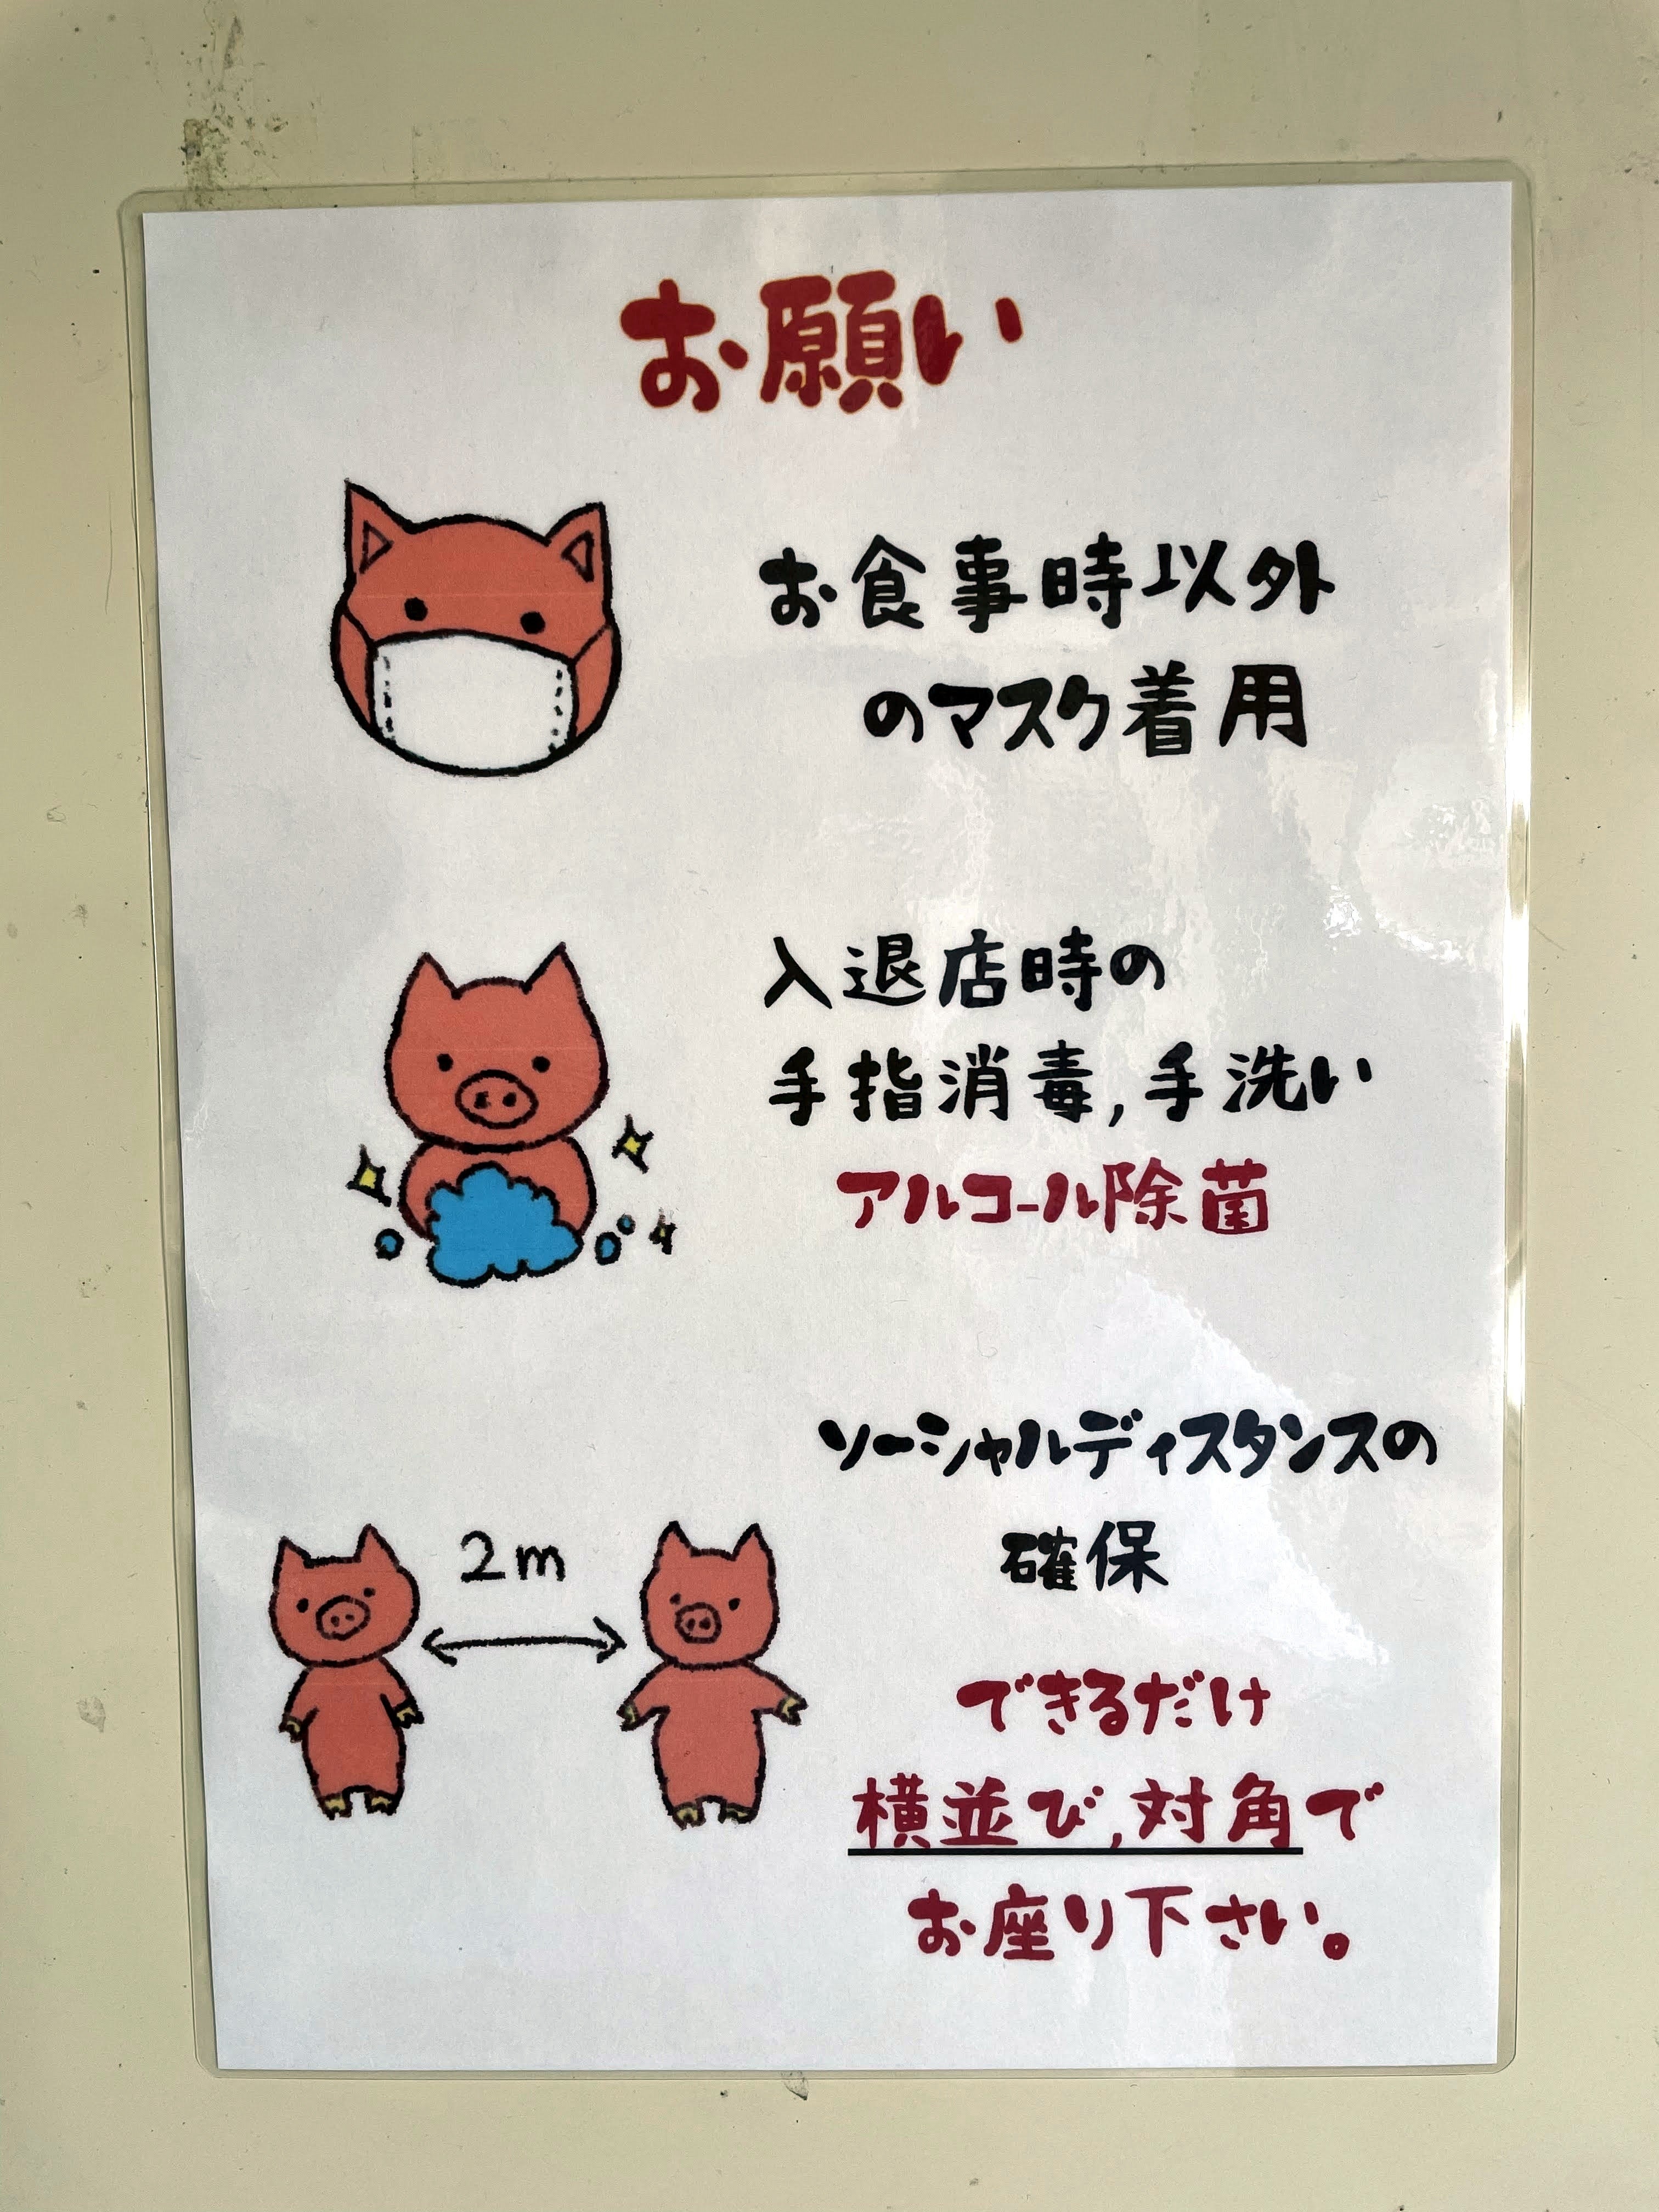 お願い
お食事時以外
のマスク着用
入退店時の
手指消毒,手洗い
アルコール除菌
ソーシャルディスタンスの
確保
2m
できるだけ
横並び,対角で
お座り下さい。